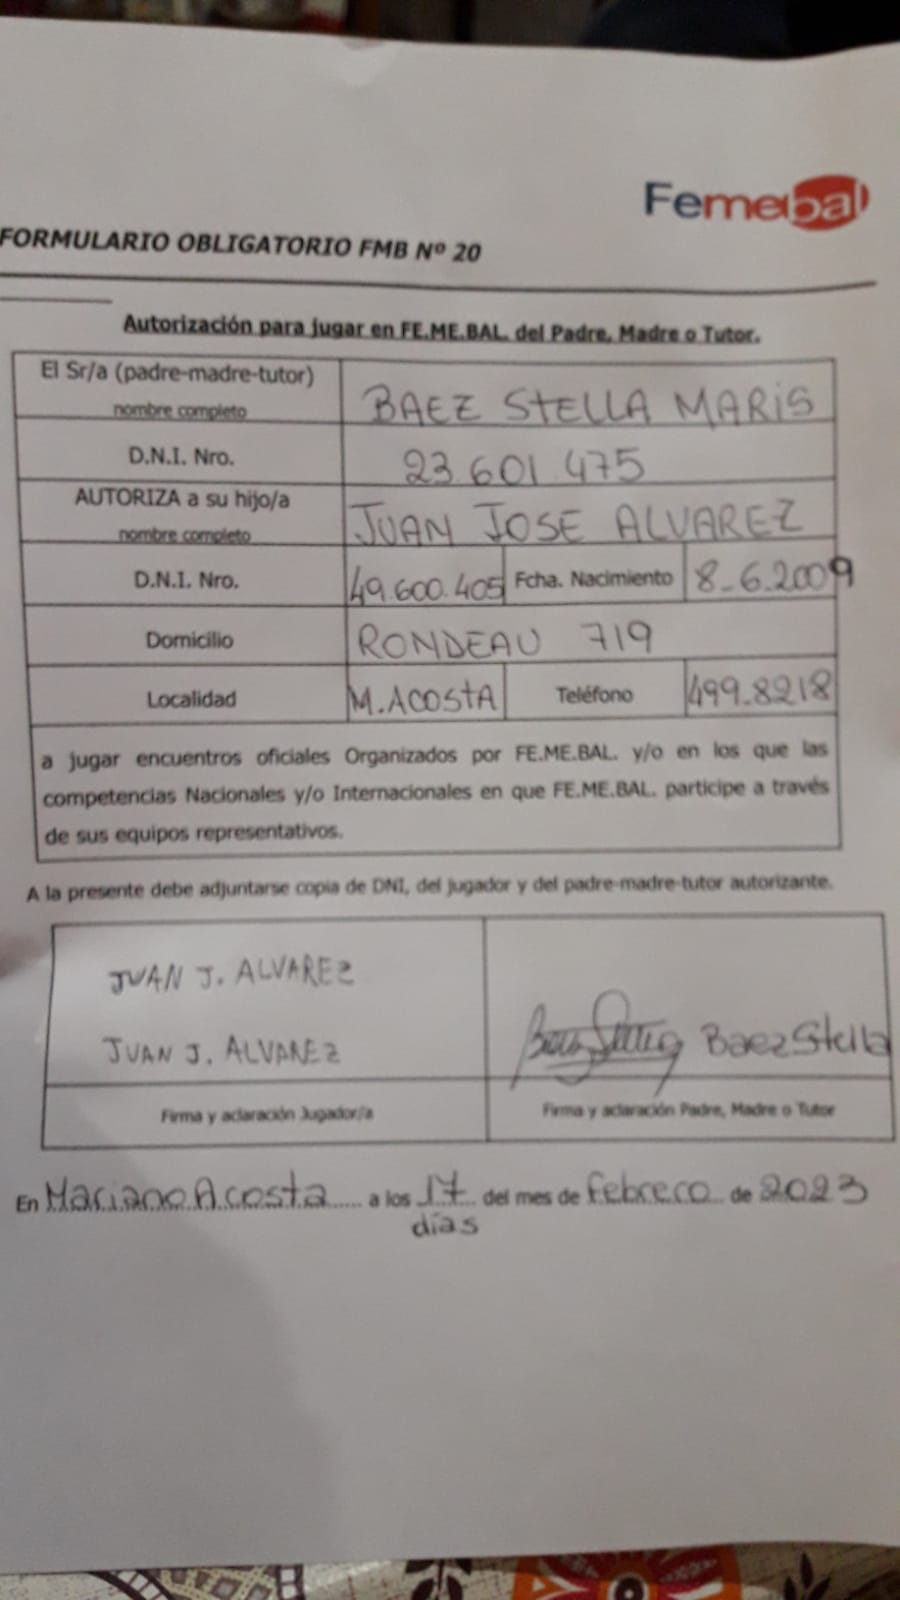 Femebal
FORMULARIO OBLIGATORIO FMB Nº 20
Autorización para jugar en FE.ME.BAL. del Padre, Madre o Tutor.
El Sr/a (padre-madre-tutor)
nombre completo
BAEZ STELLA MARIS
D.N.I. Nro.
23.601.475
AUTORIZA a su hijo/a
nombre completo
JUAN JOSE ALVAREZ
D.N.I. Nro.
49.600.405
Fcha. Nacimiento
8-6-2009
Domicilio
RONDEAU 719
Localidad
M.ACOSTA
Teléfono
499-8218
a jugar encuentros oficiales Organizados por FE.ME.BAL. y/o en los que las
competencias Nacionales y/o Internacionales en que FE.ME.BAL. participe a través
de sus equipos representativos.
A la presente debe adjuntarse copia de DNI, del jugador y del padre-madre-tutor autorizante.
JUAN J. ALVAREZ
JUAN J. ALVAREZ
Baez Stella
Firma y aclaración Jugador/a
Firma y aclaración Padre, Madre o Tutor
En Mariano Acosta a los 17 del mes de febrero de 2023
días